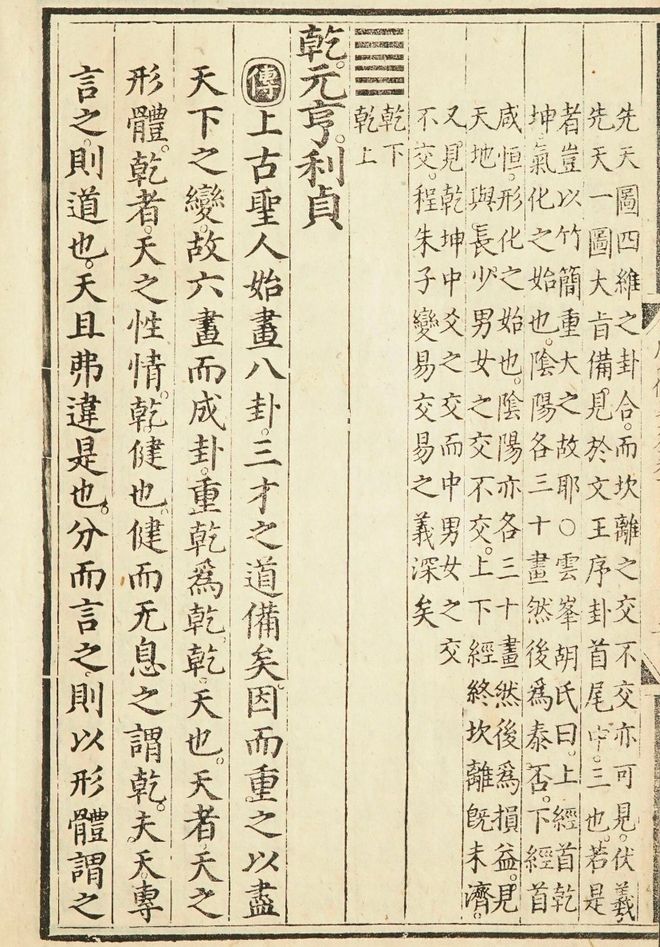 先天圖四維之卦合。而坎離之交不交亦可見。伏羲
先天一圖大旨備。見於文王序卦首尾中。三也。若是
者豈以竹簡重大之故耶○雲峯胡氏曰。上經首乾
坤。氣化之始也。陰陽各三十畫然後爲泰否。下經首
咸恒。形化之始也。陰陽亦各三十畫然後爲損益。見
天地與長少男女之交不交。上下經終坎離旣未濟。
又見乾坤中爻之交而中男女之交
不交。程朱子變易交易之義深矣
乾下
乾上
乾。元亨。利貞
傳上古聖人始畫八卦。三才之道備矣。因而重之以盡
天下之變。故六畫而成卦。重乾爲乾。乾。天也。天者。天之
形體。乾者。天之性情。乾。健也。健而无息之謂乾。夫天。專
言之。則道也。天且弗違是也。分而言之。則以形體謂之